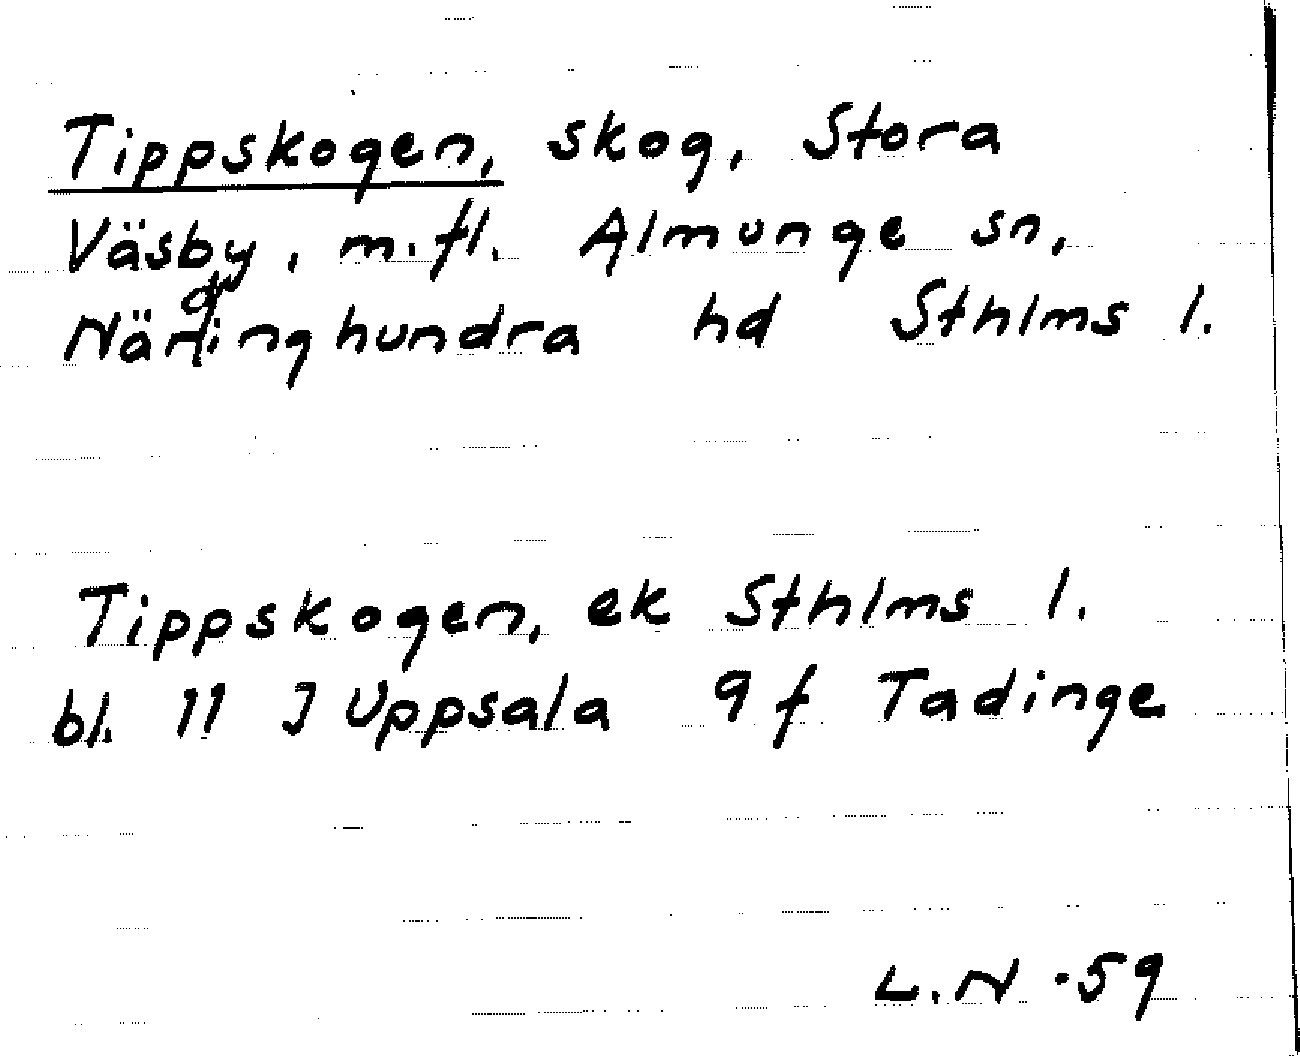 Tippskogen, skog, Stora
Väsby, m.fl. Almunge sn,
Närdinghundra hd Sthlms l.
Tippskogen, ek Sthlms l.
bl. 11 J Uppsala 9 f Tadinge
L.N -59